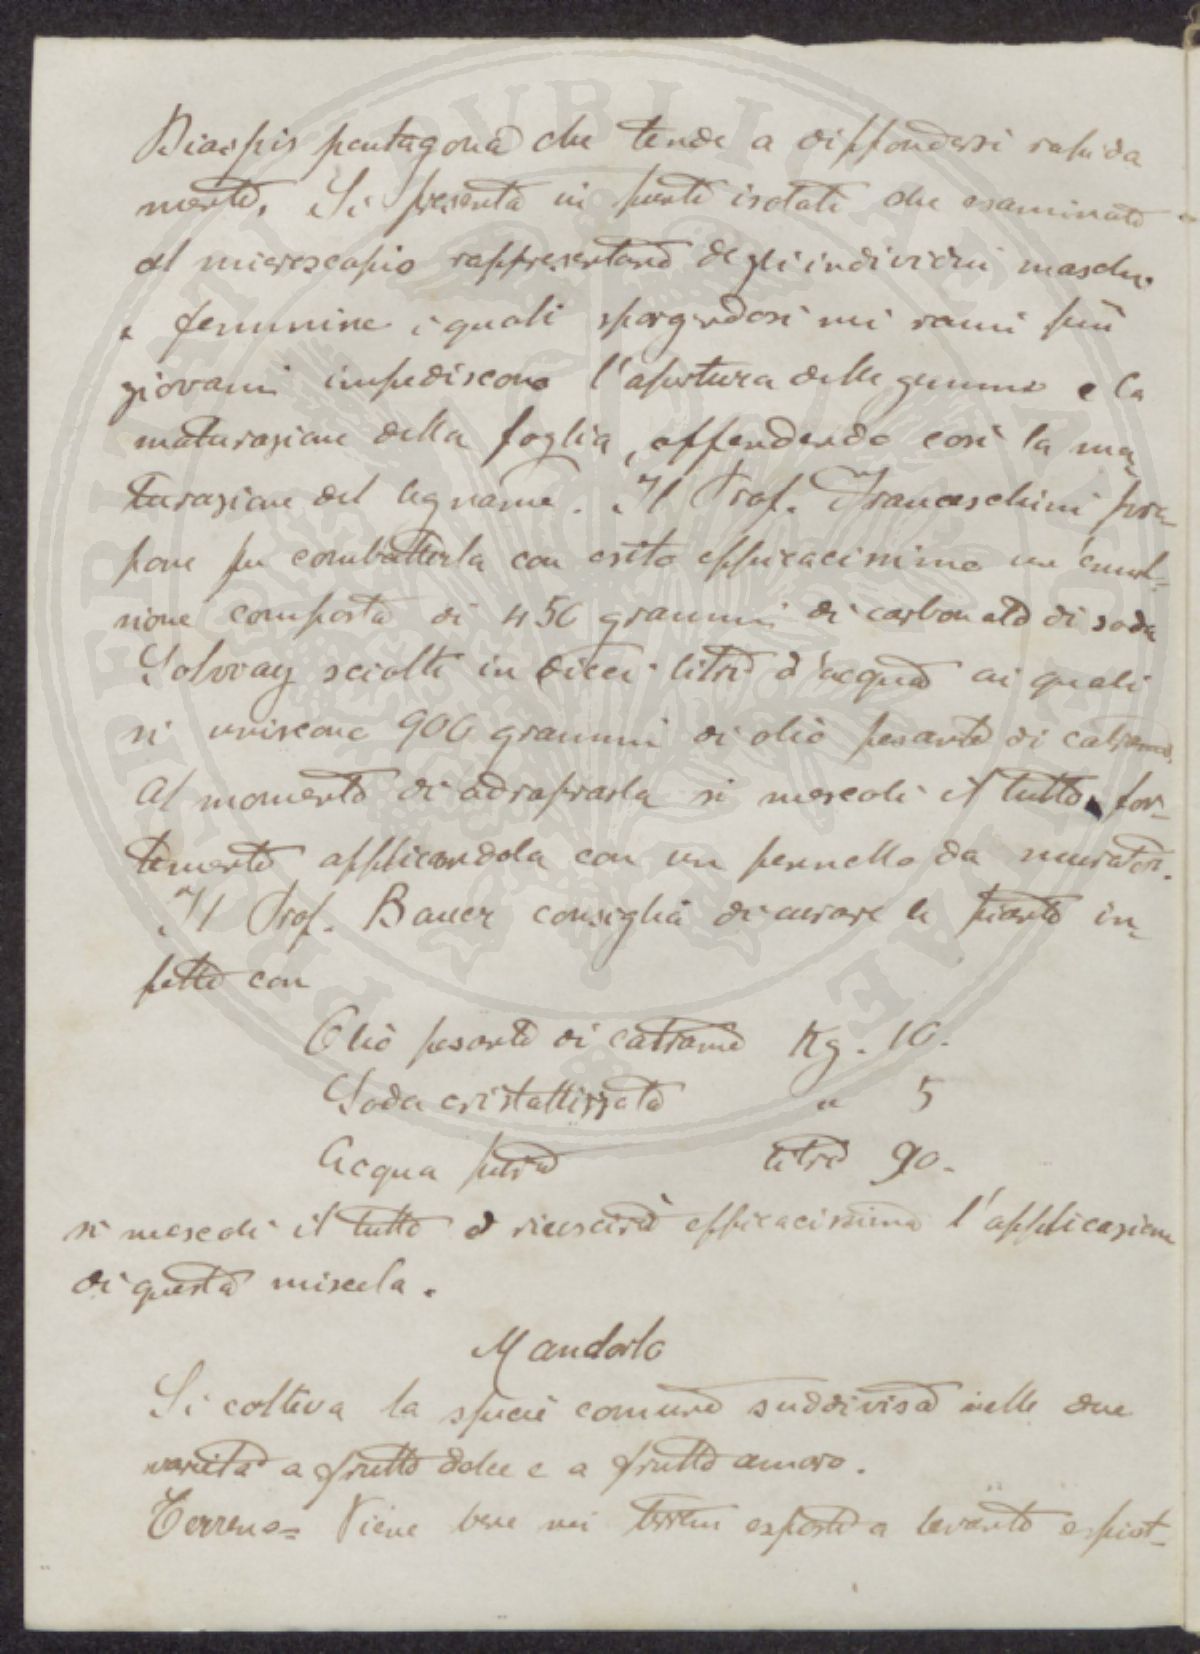 Diaspis pentagona che tende a diffondersi rapida
mente. Si presenta in punti isolati che esaminati
al microscopio rappresentano degli individui maschi
e femmine i quali spargendosi nei rami più
giovani impediscono l'apertura delle gemme e la
maturazione della foglia, offendendo così la ma
turazione del legname. Il Prof. Franceschini pro-
pone per combatterla con esito efficacissimo un'emul-
sione composta di 450 grammi di carbonato di soda
Solvay sciolti in dieci litri d'acqua ai quali
si uniscono 900 grammi di olio pesante di catrame.
Al momento di adraprarla si mescoli il tutto for-
temente applicandola con un pennello da muratori.
Il Prof. Bauer consiglia di curare le piante in-
fette con
Olio pesante di catrame Kg. 10.
Soda cristallizzata " 5
Acqua pura litri 90.
si mescoli il tutto e riuscirà efficacissima l'applicazione
di questa miscela.
Mandorlo
Si coltiva la specie comune suddivisa nelle due
varietà a frutto dolce e a frutto amaro.
Terreno= Viene bene nei terreni esposti a levante
PROSPERITATI PVBLICAE AVGENDAE